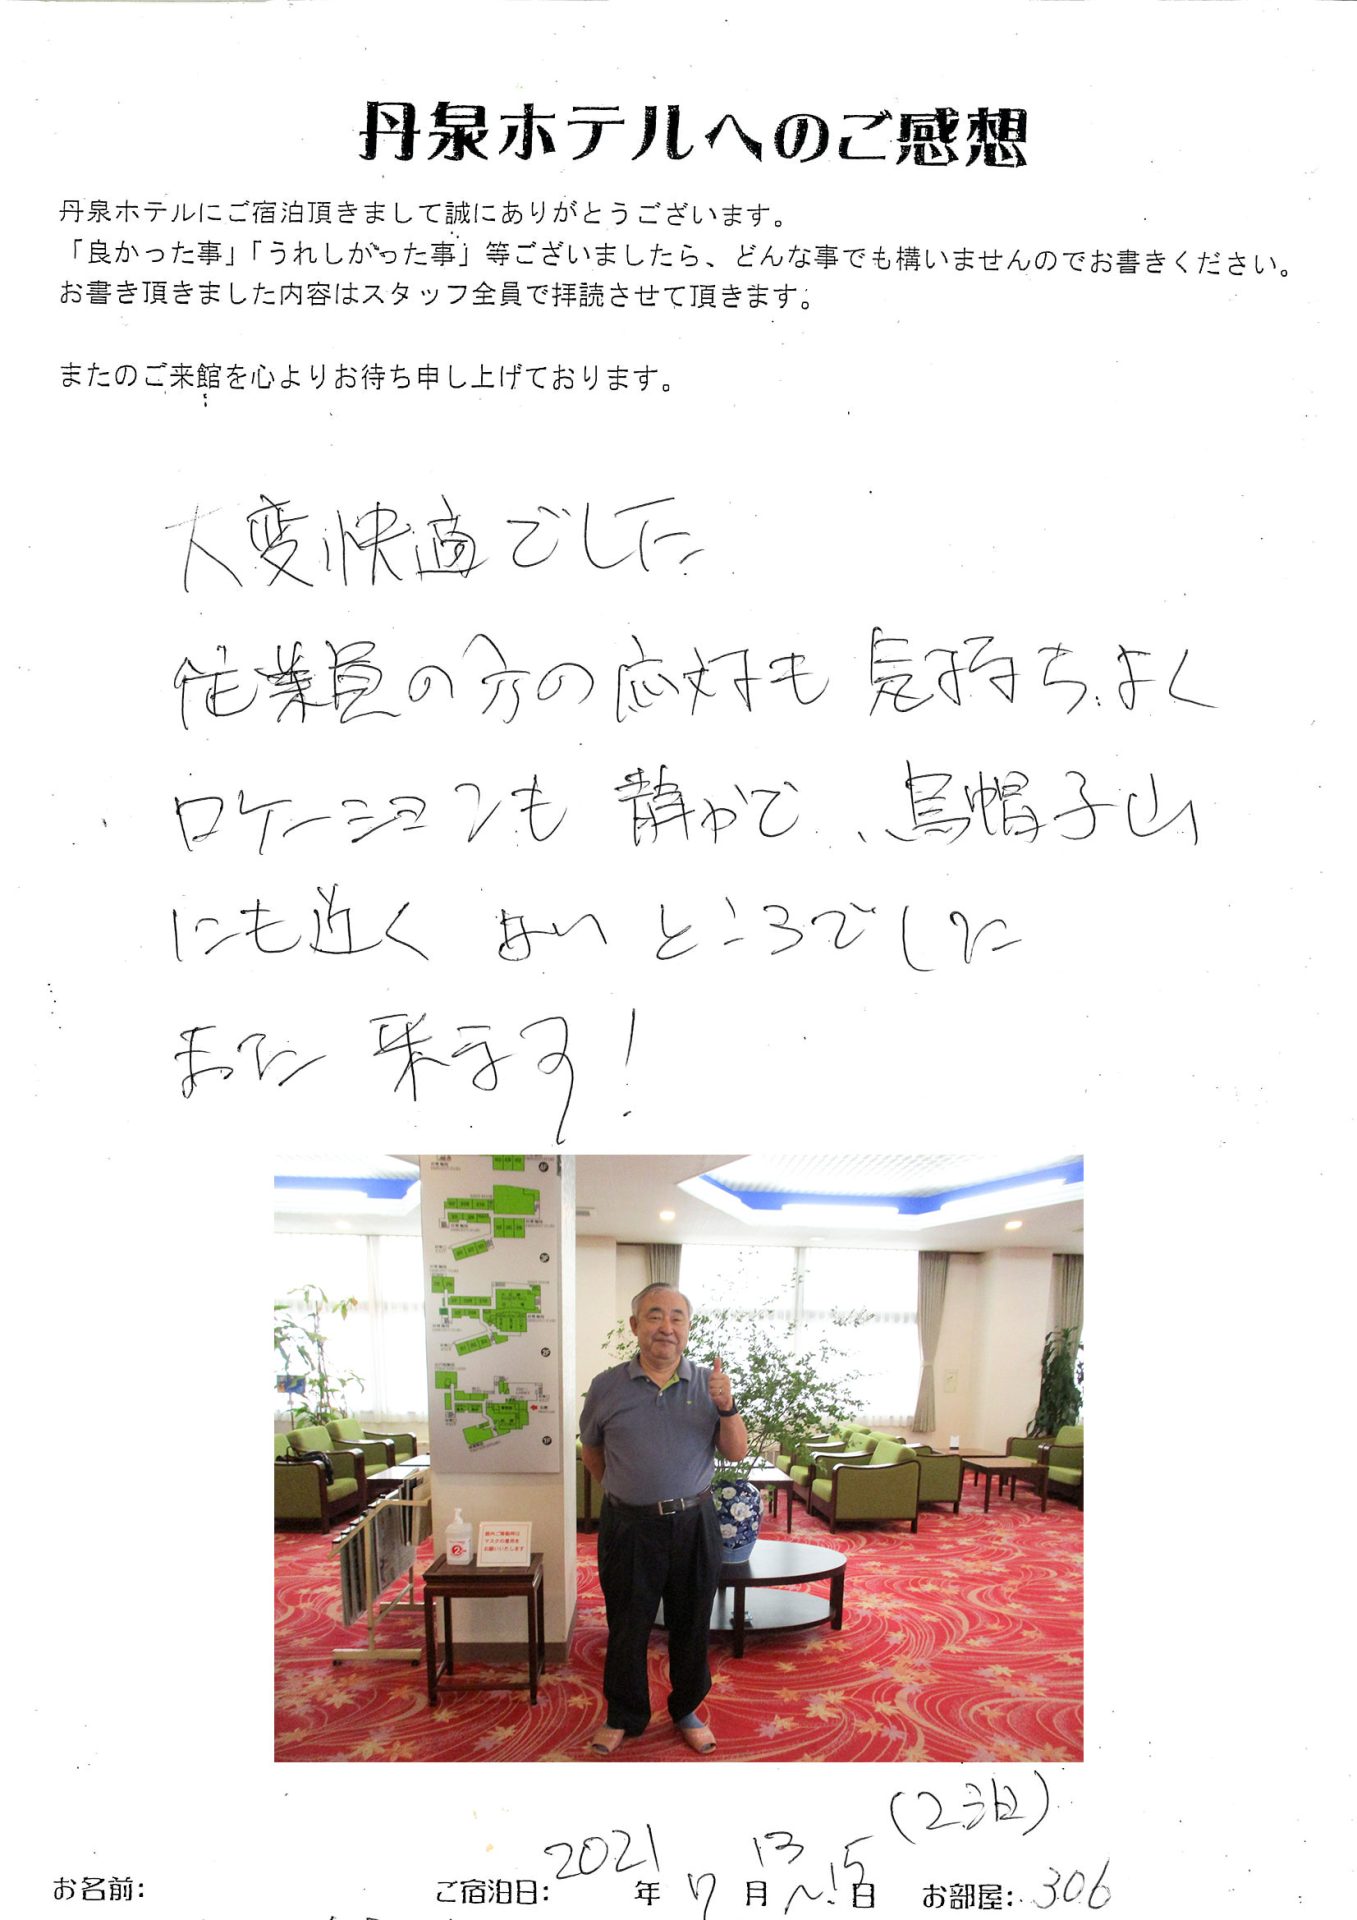 丹泉ホテルへのご感想
丹泉ホテルにご宿泊頂きまして誠にありがとうございます。
「良かった事」「うれしかった事」等ございましたら、どんな事でも構いませんのでお書きください。
お書き頂きました内容はスタッフ全員で拝読させて頂きます。
またのご来館を心よりお待ち申し上げております。
大変快適でした
従業員の方の応対も 気持ちよく
ロケーションも 静かで、烏帽子山
にも近く よい ところでした
また 来ます!
館内ご移動時は
マスクの着用を
お願いいたします
(2泊)
お名前:
ご宿泊日: 2021 年 7 月 13 ~ 15 日 お部屋: 306